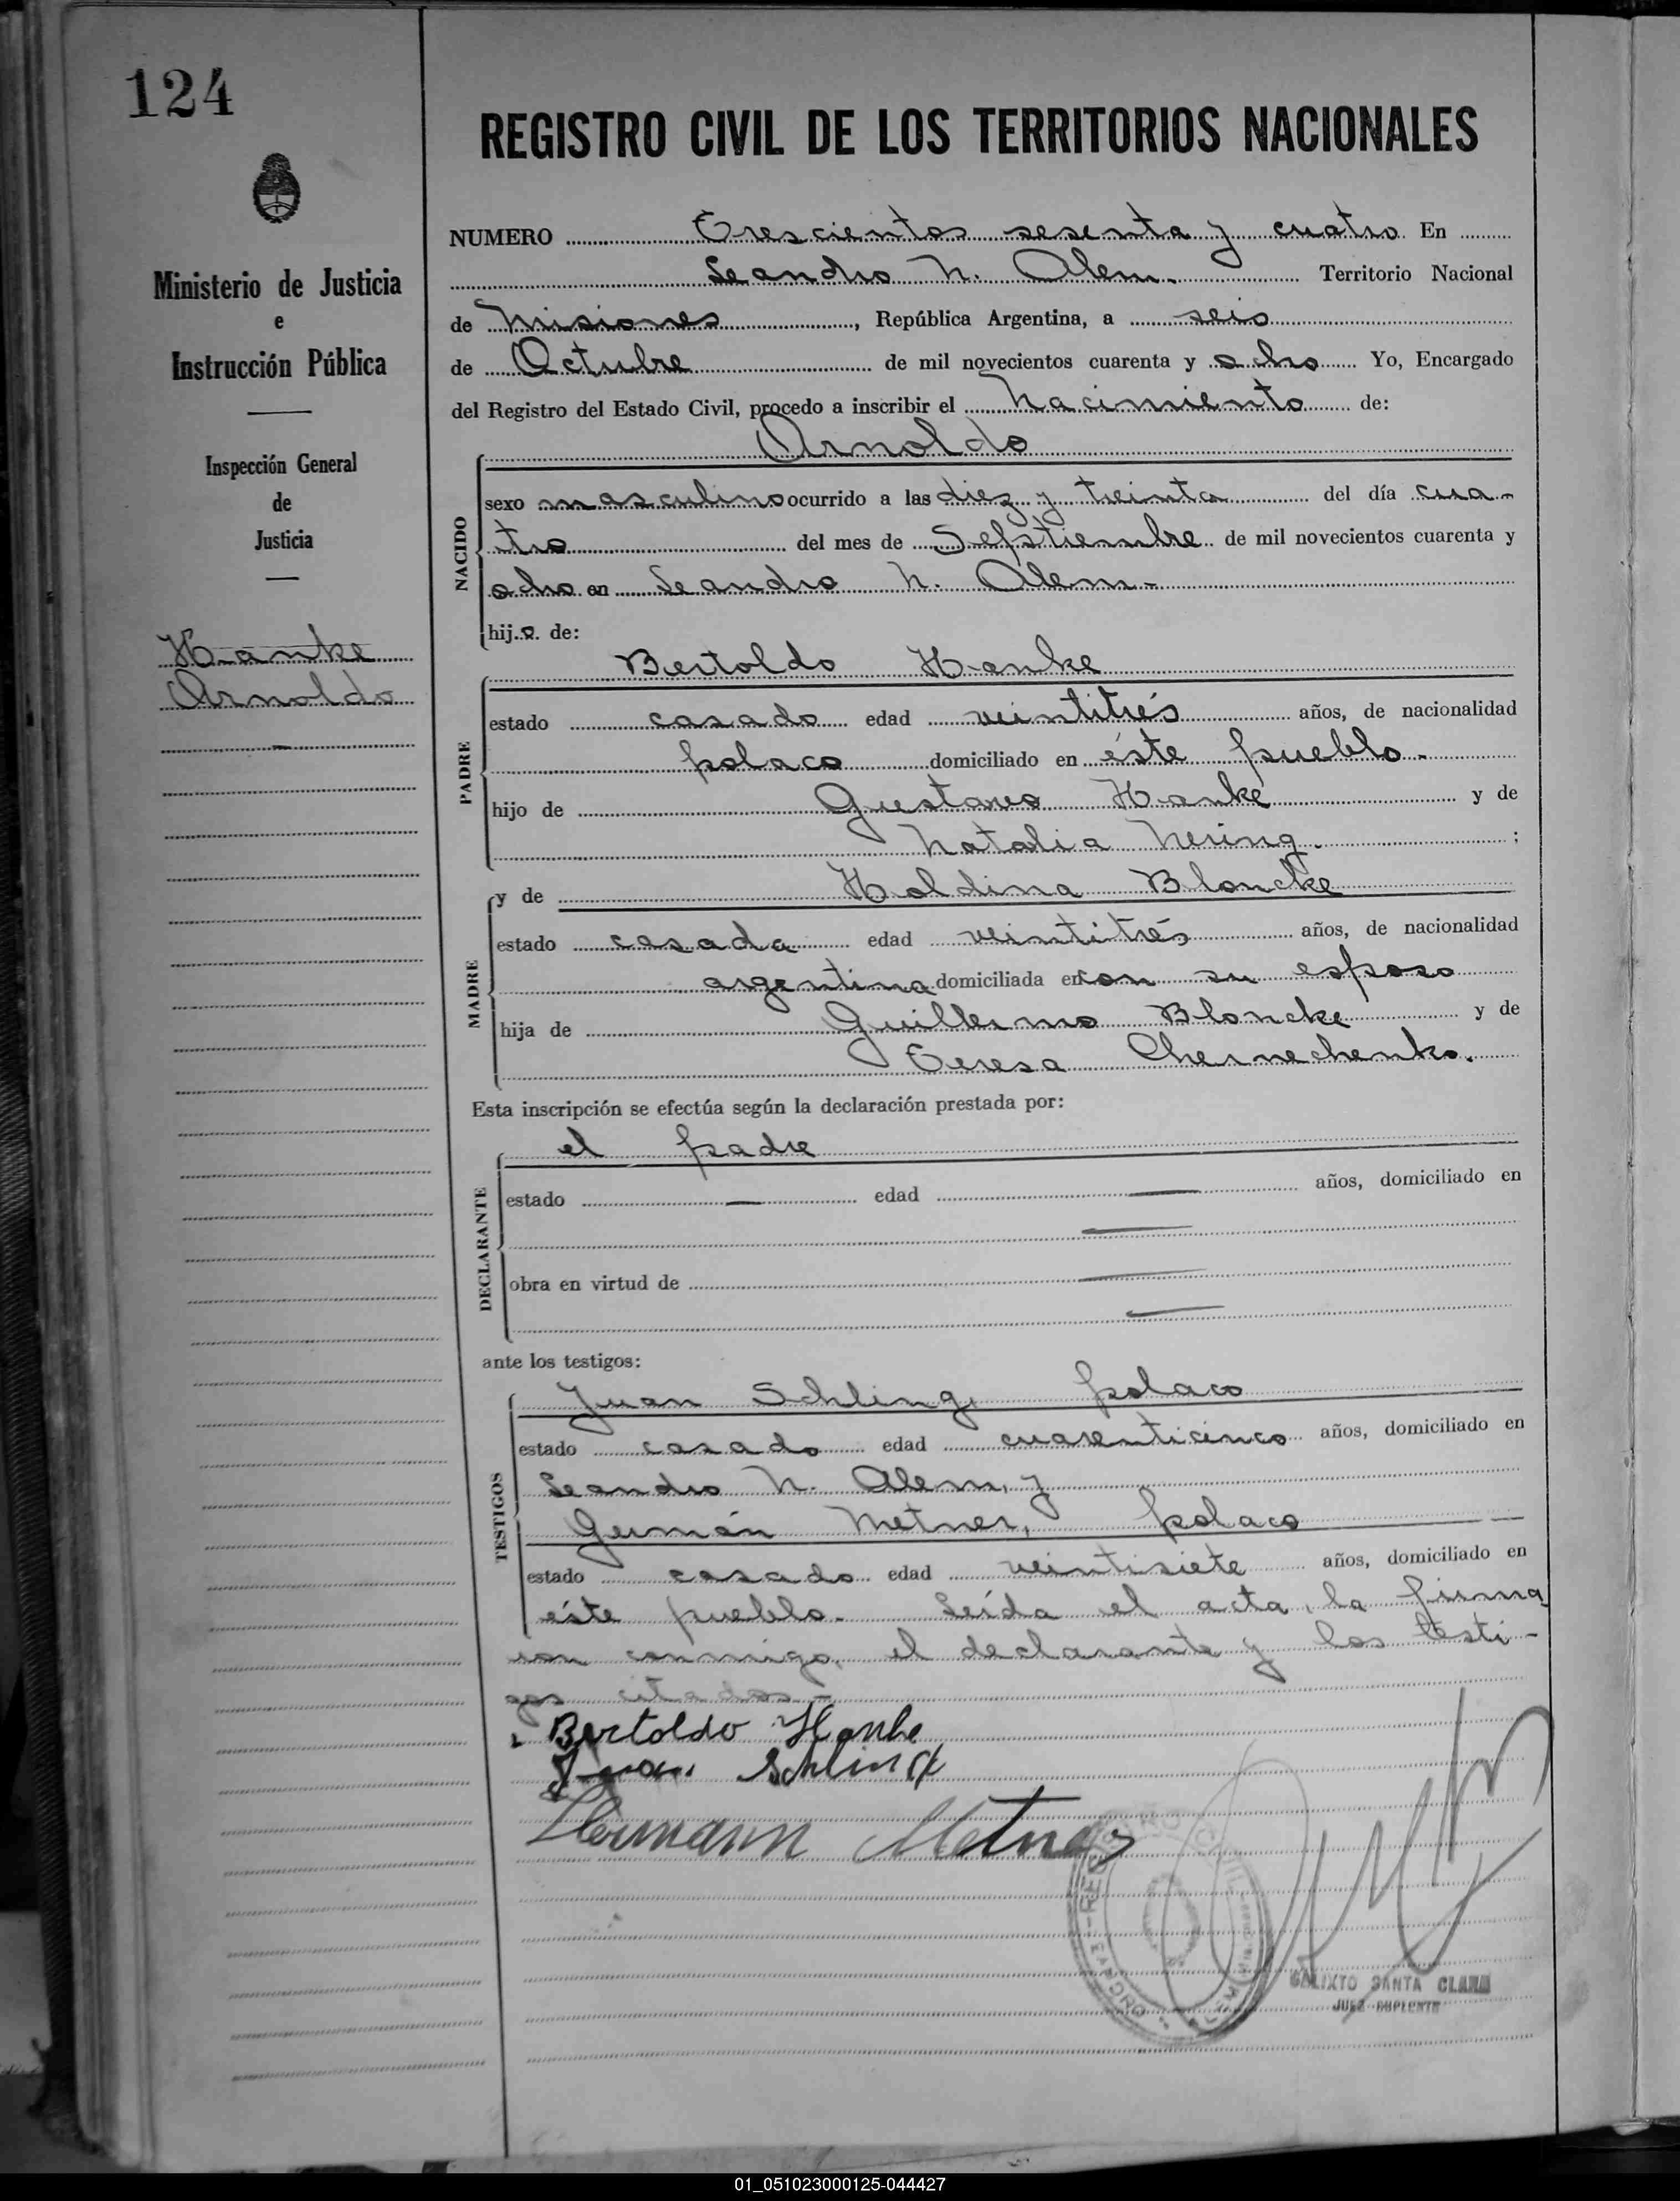 124
REGISTRO CIVIL DE LOS TERRITORIOS NACIONALES
Ministerio de Justicia
e
Instrucción Pública
Inspección General
de
Justicia
Hanke
Arnoldo
NUMERO Trescientos sesenta y cuatro En
Leandro N. Alem. Territorio Nacional
de Misiones, República Argentina, a seis
de Octubre de mil novecientos cuarenta y ocho Yo, Encargado
del Registro del Estado Civil, procedo a inscribir el Nacimiento de:
Arnoldo
NACIDO
sexo masculino ocurrido a las diez y treinta del día cua-
tro del mes de Sepstiembre de mil novecientos cuarenta y
ocho en Leandro N. Alem-
hijo de:
Bertoldo Hanke
PADRE
estado casado edad veintitrés años, de nacionalidad
polaco domiciliado en éste pueblo.
hijo de Gustavo Hanke y de
Natalia Nering. ;
MADRE
y de Holdina Bloncke
estado casada edad veintitrés años, de nacionalidad
argentina domiciliada en con su esposo
hija de Guillermo Bloncke y de
Teresa Chernechenko.
Esta inscripción se efectúa según la declaración prestada por:
el padre
DECLARANTE
estado — edad — años, domiciliado en
—
obra en virtud de —
—
ante los testigos:
TESTIGOS
Juan Schling, polaco
estado casado edad cuarenticinco años, domiciliado en
Leandro N. Alem, y
Germán Metner, polaco
estado casado edad veintisiete años, domiciliado en
éste pueblo. Leída el acta, la firma
ron conmigo, el declarante y los testi-
gos citados-
Bertoldo Hanke
Juan Schling
Hermann Metner
REGISTRO CIVIL
LEANDRO N. ALEM
CALIXTO SANTA CLARA
JUEZ SUPLENTE
01_051023000125-044427